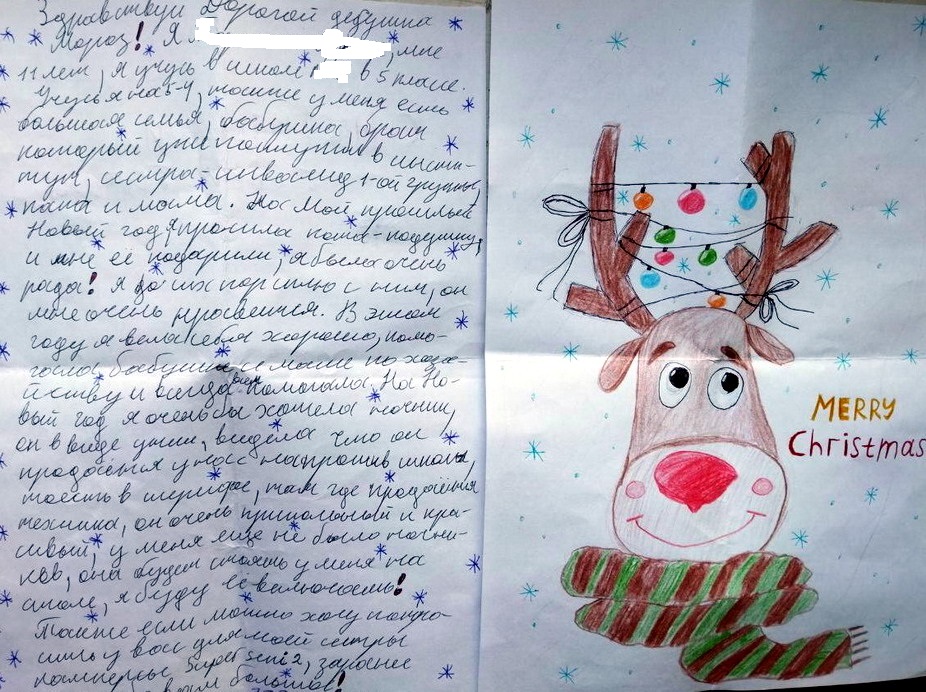 Здравствуй Дорогой дедушка
Мороз! Я мне
11 лет, я учусь в школе в 5 классе.
Учусь я на 5-4, также у меня есть
большая семья, бабушка, брат
который уже поступил в инсти-
тут, сестра-инвалид 1-ой группы,
папа и мама. На мой прошлый
Новый год я просила кота-подушку,
и мне её подарили, я была очень
рада! Я до сих пор сплю с ним, он
мне очень нравится. В этом
году я вела себя хорошо, помо-
гала бабушке и маме по хозя-
йству и всегда всем помогала. На Но-
вый год я очень бы хотела ночник,
он в виде утки, видела что он
продается у нас напротив школы,
тоесть в шерифе, там где продается
техника, он очень прикольный и кра-
сивый, у меня еще не было ночни-
ков, она будет стоять у меня на
столе, я буду её включать!
Также если можно хочу попро-
сить у вас для моей сестры
памперсы Super Seni 2, заранее
вам большое!
MERRY
Christmas